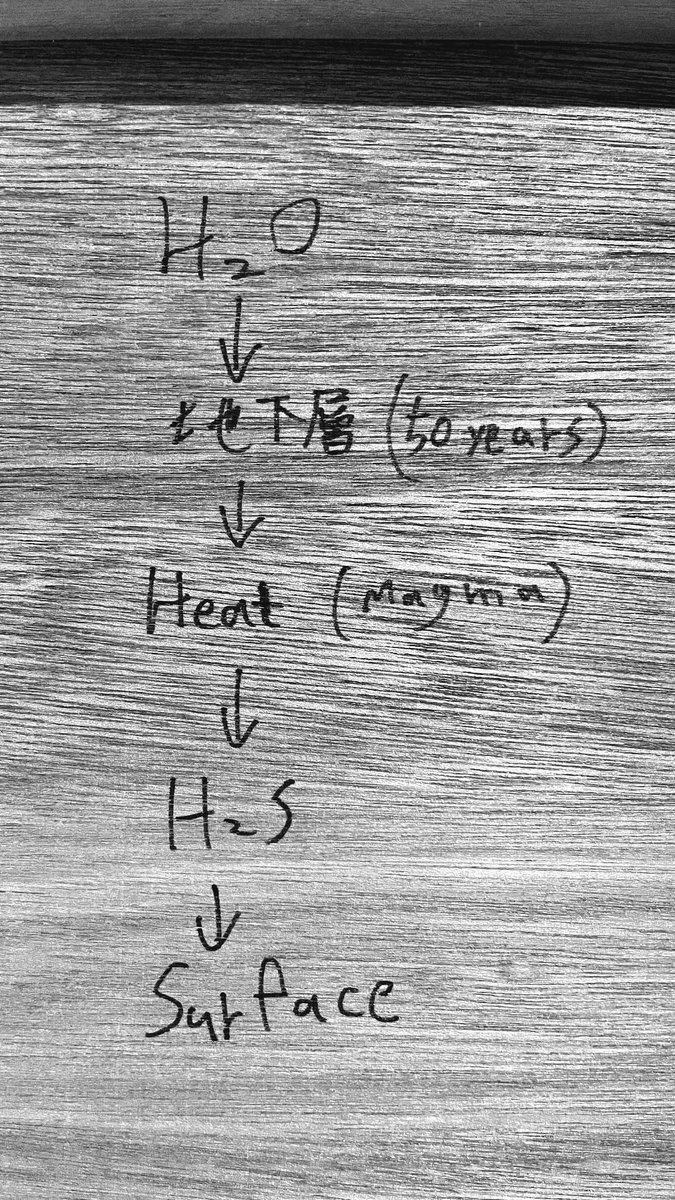 H₂O
↓
地下層 (50 years)
↓
Heat (Magma)
↓
H₂S
↓
Surface